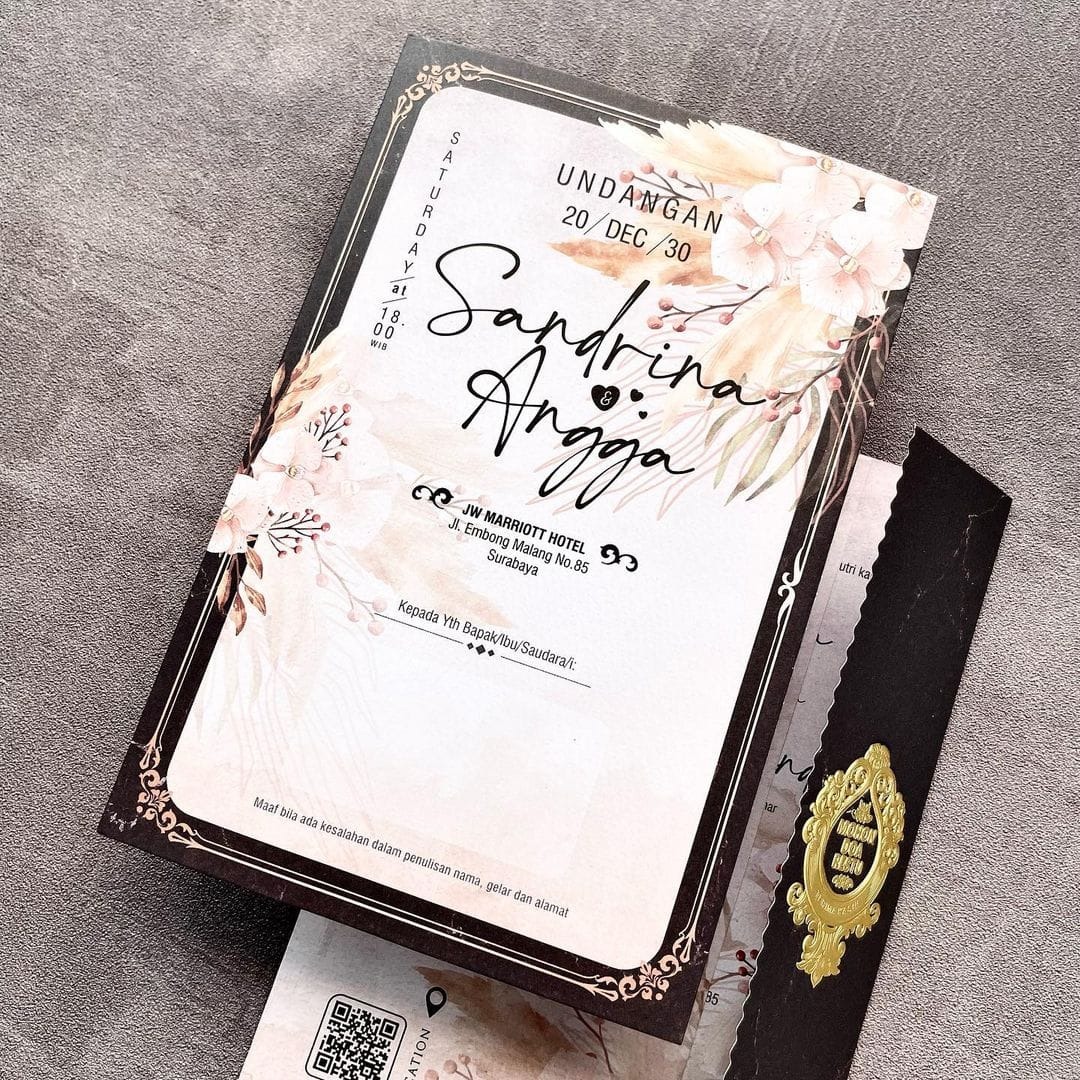 SATURDAY
/at/
18.
00
WIB
UNDANGAN
20/DEC/30
Sandrina
&
Angga
JW MARRIOTT HOTEL
Jl. Embong Malang No.85
Surabaya
Kepada Yth Bapak/Ibu/Saudara/i:
Maaf bila ada kesalahan dalam penulisan nama, gelar dan alamat
utri ka
na
nar
85
MOHON
DOA
RESTU
ATION